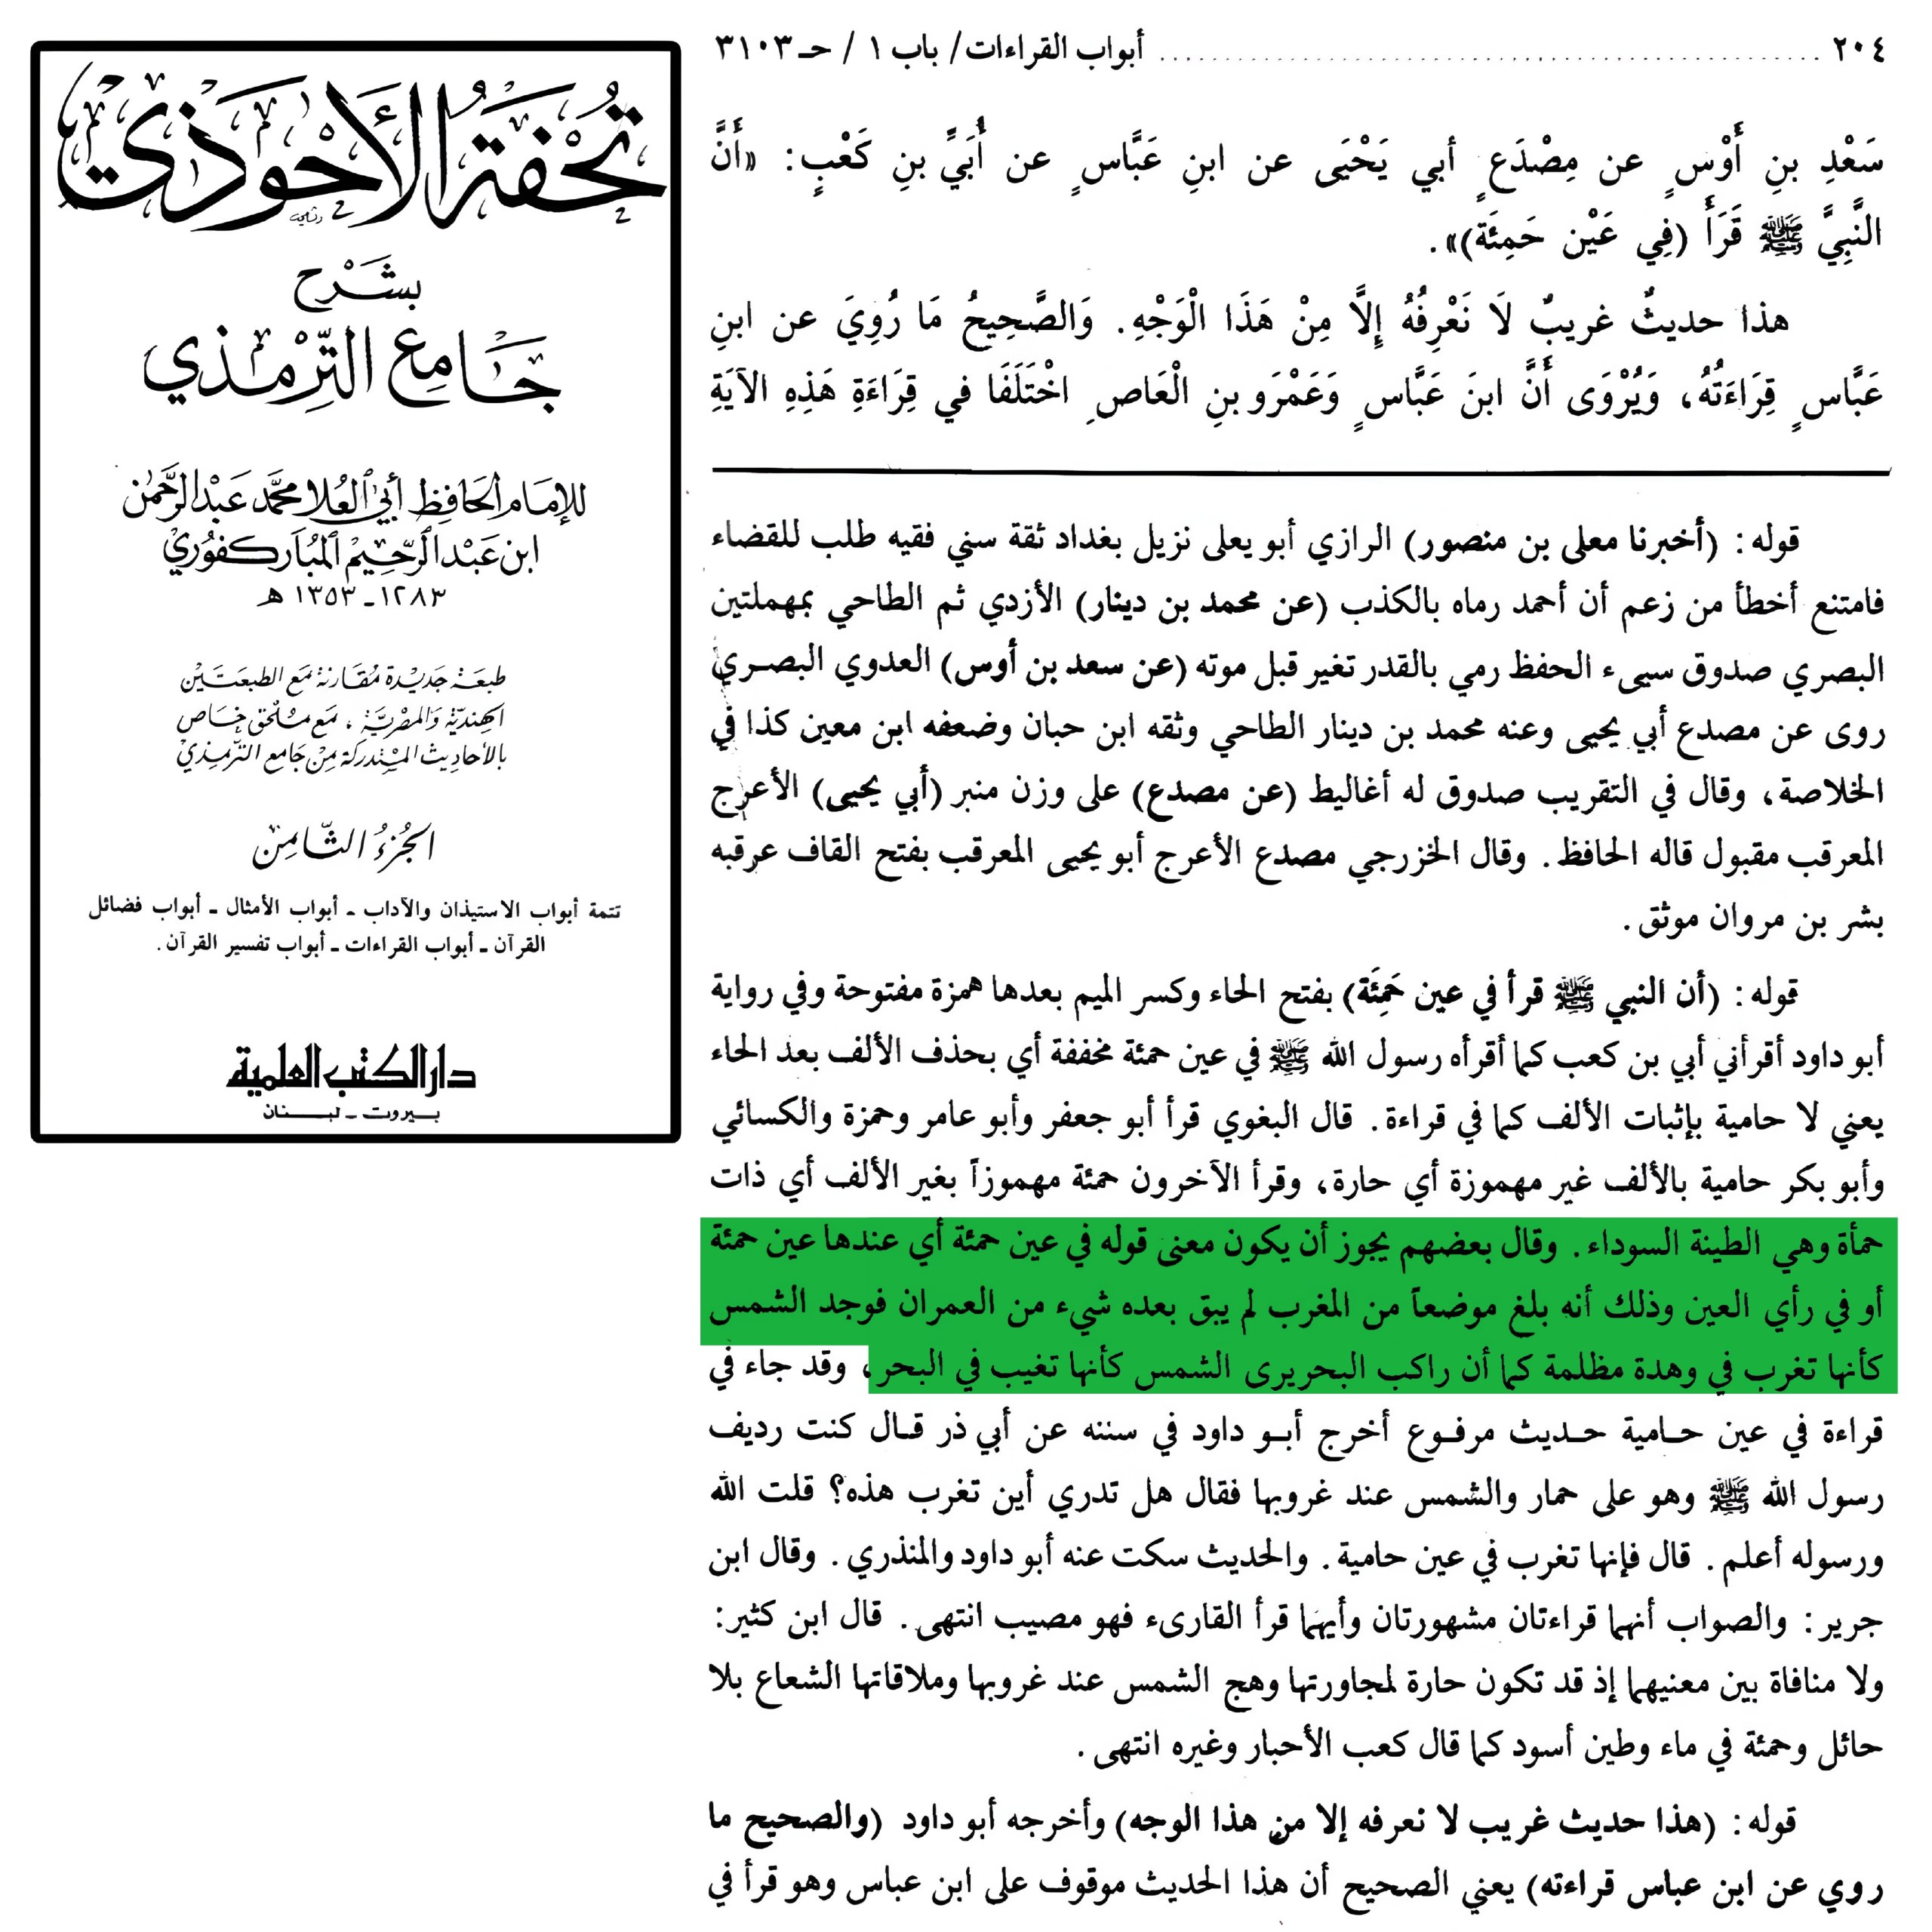 ٢٠٤ ........ أبواب القراءات/ باب ١ / حـ ٣١٠٣
سَعْدِ بنِ أَوْسٍ عن مِصْدَعٍ أبي يَحْيَى عن ابنِ عَبَّاسٍ عن أُبَيِّ بنِ كَعْبٍ: «أَنَّ
النَّبِيَّ ﷺ قَرَأَ (فِي عَيْن حَمِئَة)».
هذا حديثٌ غريبٌ لَا نَعْرِفُهُ إِلَّا مِنْ هَذَا الْوَجْهِ. وَالصَّحِيحُ مَا رُوِيَ عن ابنِ
عَبَّاسٍ قِرَاءَتُهُ، وَيُرْوَى أَنَّ ابنَ عَبَّاسٍ وَعَمْرَو بنِ الْعَاصِ اخْتَلَفَا في قِرَاءَةِ هَذِهِ الآيَةِ
قوله: (أخبرنا معلى بن منصور) الرازي أبو يعلى نزيل بغداد ثقة سني فقيه طلب للقضاء
فامتنع أخطأ من زعم أن أحمد رماه بالكذب (عن محمد بن دينار) الأزدي ثم الطاحي بمهملتين
البصري صدوق سيىء الحفظ رمي بالقدر تغير قبل موته (عن سعد بن أوس) العدوي البصري
روى عن مصدع أبي يحيى وعنه محمد بن دينار الطاحي وثقه ابن حبان وضعفه ابن معين كذا في
الخلاصة، وقال في التقريب صدوق له أغاليط (عن مصدع) على وزن منبر (أبي يحيى) الأعرج
المعرقب مقبول قاله الحافظ. وقال الخزرجي مصدع الأعرج أبو يحيى المعرقب بفتح القاف عرقبه
بشر بن مروان موثق.
قوله: (أن النبي ﷺ قرأ في عين حَمِئَة) بفتح الحاء وكسر الميم بعدها همزة مفتوحة وفي رواية
أبو داود أقرأني أبي بن كعب كما أقرأه رسول الله ﷺ في عين حمئة مخففة أي بحذف الألف بعد الحاء
يعني لا حامية بإثبات الألف كما في قراءة. قال البغوي قرأ أبو جعفر وأبو عامر وحمزة والكسائي
وأبو بكر حامية بالألف غير مهموزة أي حارة، وقرأ الآخرون حمئة مهموزاً بغير الألف أي ذات
حمأة وهي الطينة السوداء. وقال بعضهم يجوز أن يكون معنى قوله في عين حمئة أي عندها عين حمئة
أو في رأي العين وذلك أنه بلغ موضعاً من المغرب لم يبق بعده شيء من العمران فوجد الشمس
كأنها تغرب في وهدة مظلمة كما أن راكب البحريرى الشمس كأنها تغيب في البحر، وقد جاء في
قراءة في عين حامية حديث مرفوع أخرج أبو داود في سننه عن أبي ذر قال كنت رديف
رسول الله ﷺ وهو على حمار والشمس عند غروبها فقال هل تدري أين تغرب هذه؟ قلت الله
ورسوله أعلم. قال فإنها تغرب في عين حامية. والحديث سكت عنه أبو داود والمنذري. وقال ابن
جرير: والصواب أنهما قراءتان مشهورتان وأيهما قرأ القارىء فهو مصيب انتهى. قال ابن كثير:
ولا منافاة بين معنييهما إذ قد تكون حارة لمجاورتها وهج الشمس عند غروبها وملاقاتها الشعاع بلا
حائل وحمئة في ماء وطين أسود كما قال كعب الأحبار وغيره انتهى.
قوله: (هذا حديث غريب لا نعرفه إلا من هذا الوجه) وأخرجه أبو داود (والصحيح ما
روي عن ابن عباس قراءته) يعني الصحيح أن هذا الحديث موقوف على ابن عباس وهو قرأ في
تُحْفَةُ الأَحْوَذِي
بشَرْح
جَامِع التِّرْمِذي
للإِمَام الحَافِظ أَبي العُلا محمَّد عَبْد الرَّحْمٰن
ابن عَبْد الرَّحِيْم المُبَاركفُوريْ
١٢٨٣ ـ ١٣٥٣ هـ
طبعَة جَديْدة مُقَارنة مَع الطبعَتَيْن
الهنديّة وَالمصْريَّة، مَع مُلحَق خَاص
بالأحاديث المسْتدركة مِنْ جَامع التّرمذيْ
الجُزءُ الثَّامِن
تتمة أبواب الاستيذان والآداب ـ أبواب الأمثال ـ أبواب فضائل
القرآن ـ أبواب القراءات ـ أبواب تفسير القرآن.
دار الكتب العلمية
بيروت ـ لبنان